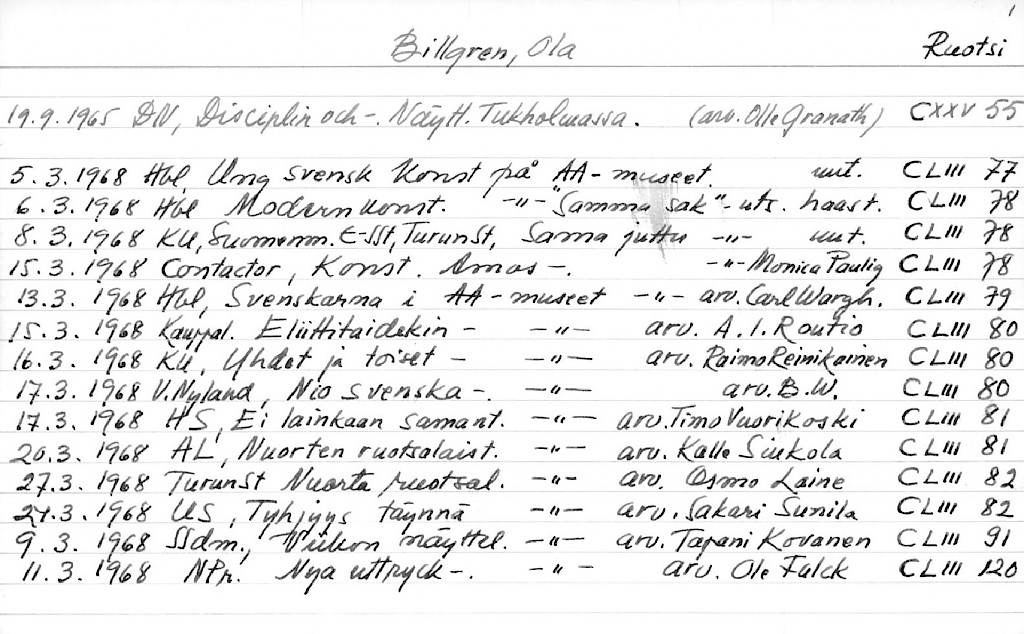 1
Billgren, Ola Ruotsi
19.9.1965 DN, Disciplin och -. Näytt. Tukholmassa. (arv. Olle Granath) CXXV 55
5.3.1968 Hbl, Ung svensk konst på AA-museet. uut. CLIII 77
6.3.1968 Hbl Modern konst. -"- "Samma sak" - uts. haast. CLIII 78
8.3.1968 KU, Suomenm. E-SSt, TurunSt, Sama juttu -"- uut. CLIII 78
15.3.1968 Contactor, Konst. Amos -. -"- Monica Paulig CLIII 78
13.3.1968 Hbl, Svenskarna i AA-museet -"- arv. Carl Wargh. CLIII 79
15.3.1968 Kauppal. Eliittitaidekin - -"- arv. A.I. Routio CLIII 80
16.3.1968 KU, Yhdet ja toiset - -"- arv. Raimo Reinikainen CLIII 80
17.3.1968 V. Nyland, Nio svenska -. -"- arv. B.W. CLIII 80
17.3.1968 HS, Ei lainkaan samant. -"- arv. Timo Vuorikoski CLIII 81
20.3.1968 AL, Nuorten ruotsalaist. -"- arv. Kalle CLIII 81
27.3.1968 TurunSt Nuorta ruotsal. -"- arv. Osmo Laine CLIII 82
27.3.1968 US, Tyhjyys täynnä -"- arv. Sakari Sunila CLIII 82
9.3.1968 SSdm., Viikon näyttel. -"- arv. Tapani Kovanen CLIII 91
11.3.1968 NPr. Nya uttryck -. -"- arv. Ole Falck CLIII 120